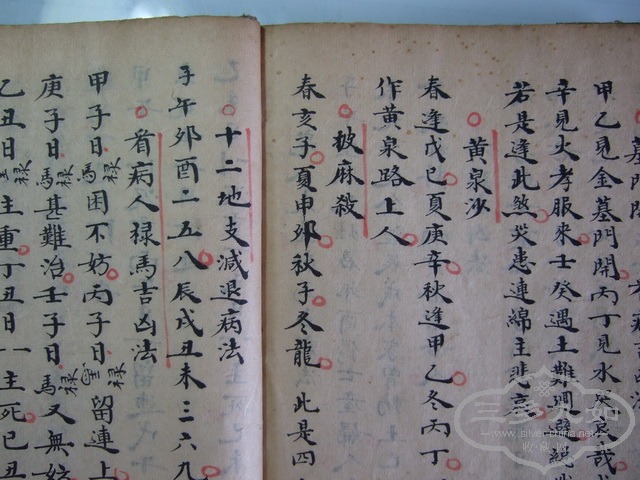 甲乙見金墓門開丙丁見水
辛見火孝服來壬癸遇土難迴避
若是逢此煞災患連綿主悲哀
黃泉沙
春逢戊巳夏庚辛秋逢甲乙冬丙丁
作黃泉路上人
披麻殺
春亥子夏申夘秋子冬龍此是四
十二地支減退病法
子午夘酉二五八辰戌丑未三六九
看病人禄馬吉凶法
甲子日禄馬困不妨丙子日禄留連上
庚子日禄馬甚難治壬子日禄馬又無妨
乙丑日禄主重丁丑日一主死巳丑
三多九如
www.silver-china.net
收·食·說